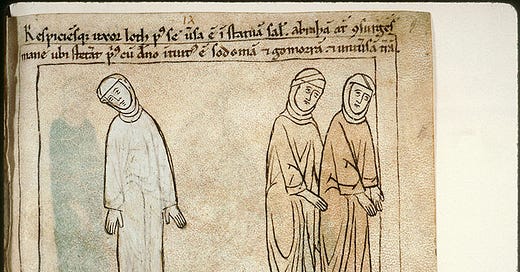 IX
Respiciensq; uxor loth p' se uersa ē i statuam sal'. abrahā aū 9surgens
mane ubi steterat p'us cū dño ituit' ē sodomā ⁊ gomorrā ⁊ uniuersā t'rā.